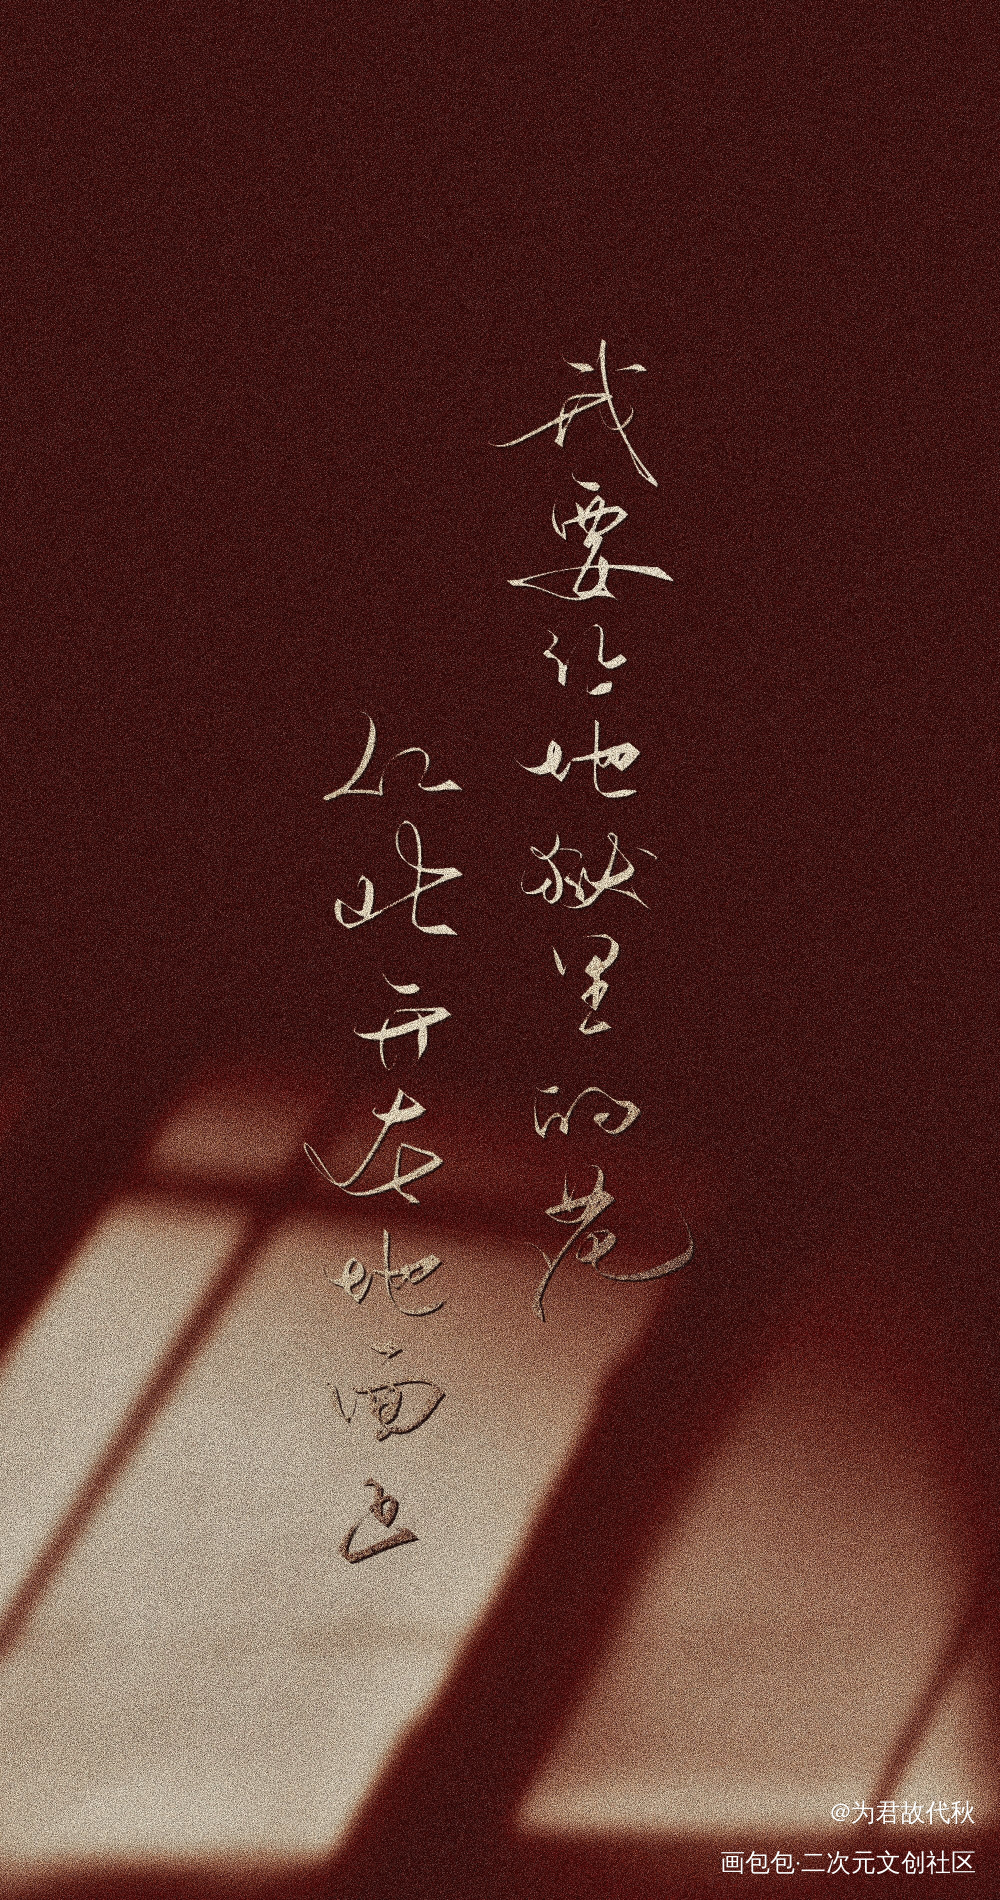 我要让地狱里的花
从此开在地面上
@为君故代秋
画包包·二次元文创社区